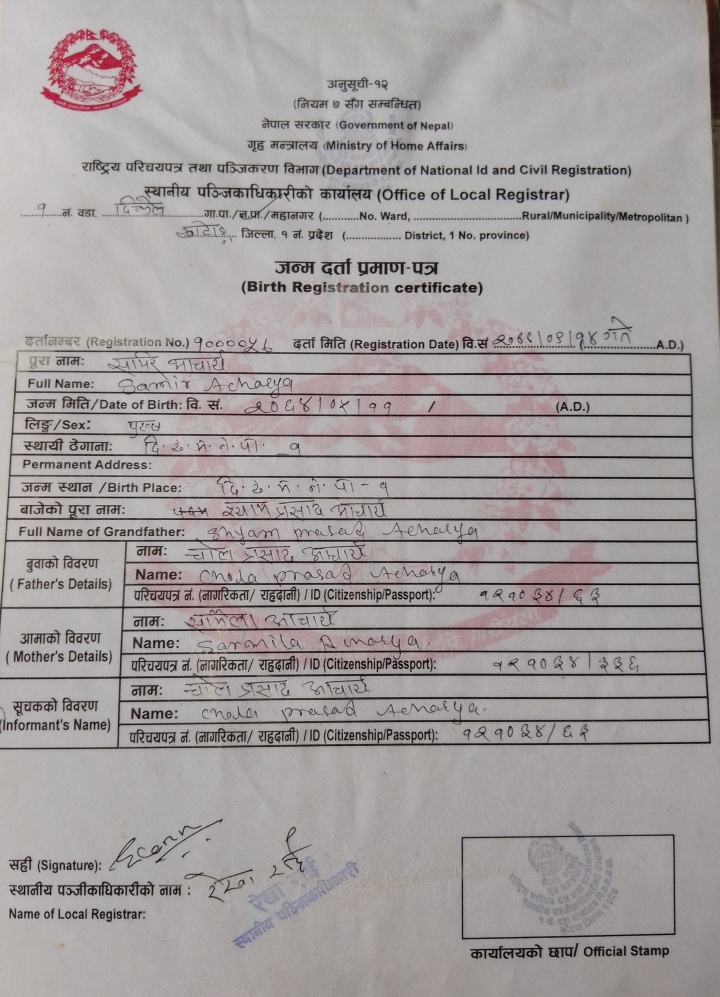 अनुसूची-१२
(नियम ७ सँग सम्बन्धित)
नेपाल सरकार (Government of Nepal)
गृह मन्त्रालय (Ministry of Home Affairs)
राष्ट्रिय परिचयपत्र तथा पञ्जिकरण विभाग (Department of National Id and Civil Registration)
स्थानीय पञ्जिकाधिकारीको कार्यालय (Office of Local Registrar)
१ न. वडा. दिक्तेल गा.पा./न.पा./महानगर (............No. Ward, ........................Rural/Municipality/Metropolitan )
खोटाङ जिल्ला, १ नं. प्रदेश (................ District, 1 No. province)
जन्म दर्ता प्रमाण-पत्र
(Birth Registration certificate)
दर्तानम्बर (Registration No.) दर्ता मिति (Registration Date) वि.सं गते (............A.D.)
पूरा नाम: आचार्य
Full Name: Samir Acharya
जन्म मिति/Date of Birth: वि. सं. २०६४/०५/११ / (A.D.)
लिङ्ग/Sex: पुरुष
स्थायी ठेगाना: दि. रु. म. न. पा. - १
Permanent Address:
जन्म स्थान /Birth Place: दि. रु. म. न. पा - १
बाजेको पूरा नाम: श्याम प्रसाद आचार्य
Full Name of Grandfather: Shyam prasad Acharya
बुवाको विवरण
( Father's Details)
नाम: प्रसाद आचार्य
Name: prasad Acharya
परिचयपत्र नं. (नागरिकता/ राहदानी) / ID (Citizenship/Passport): १२१०३४/६३
आमाको विवरण
( Mother's Details)
नाम: आचार्य
Name: Sarmila
परिचयपत्र नं. (नागरिकता/ राहदानी) / ID (Citizenship/Passport): १२१०३४/३३६
सूचकको विवरण
(Informant's Name)
नाम: प्रसाद आचार्य
Name: prasad Acharya.
परिचयपत्र नं. (नागरिकता/ राहदानी) / ID (Citizenship/Passport): १२१०३४/६३
सही (Signature):
स्थानीय पञ्जीकाधिकारीको नाम : रेखा राई
Name of Local Registrar:
रेखा राई
स्थानीय पञ्जिकाधिकारी
कार्यालयको छाप/ Official Stamp